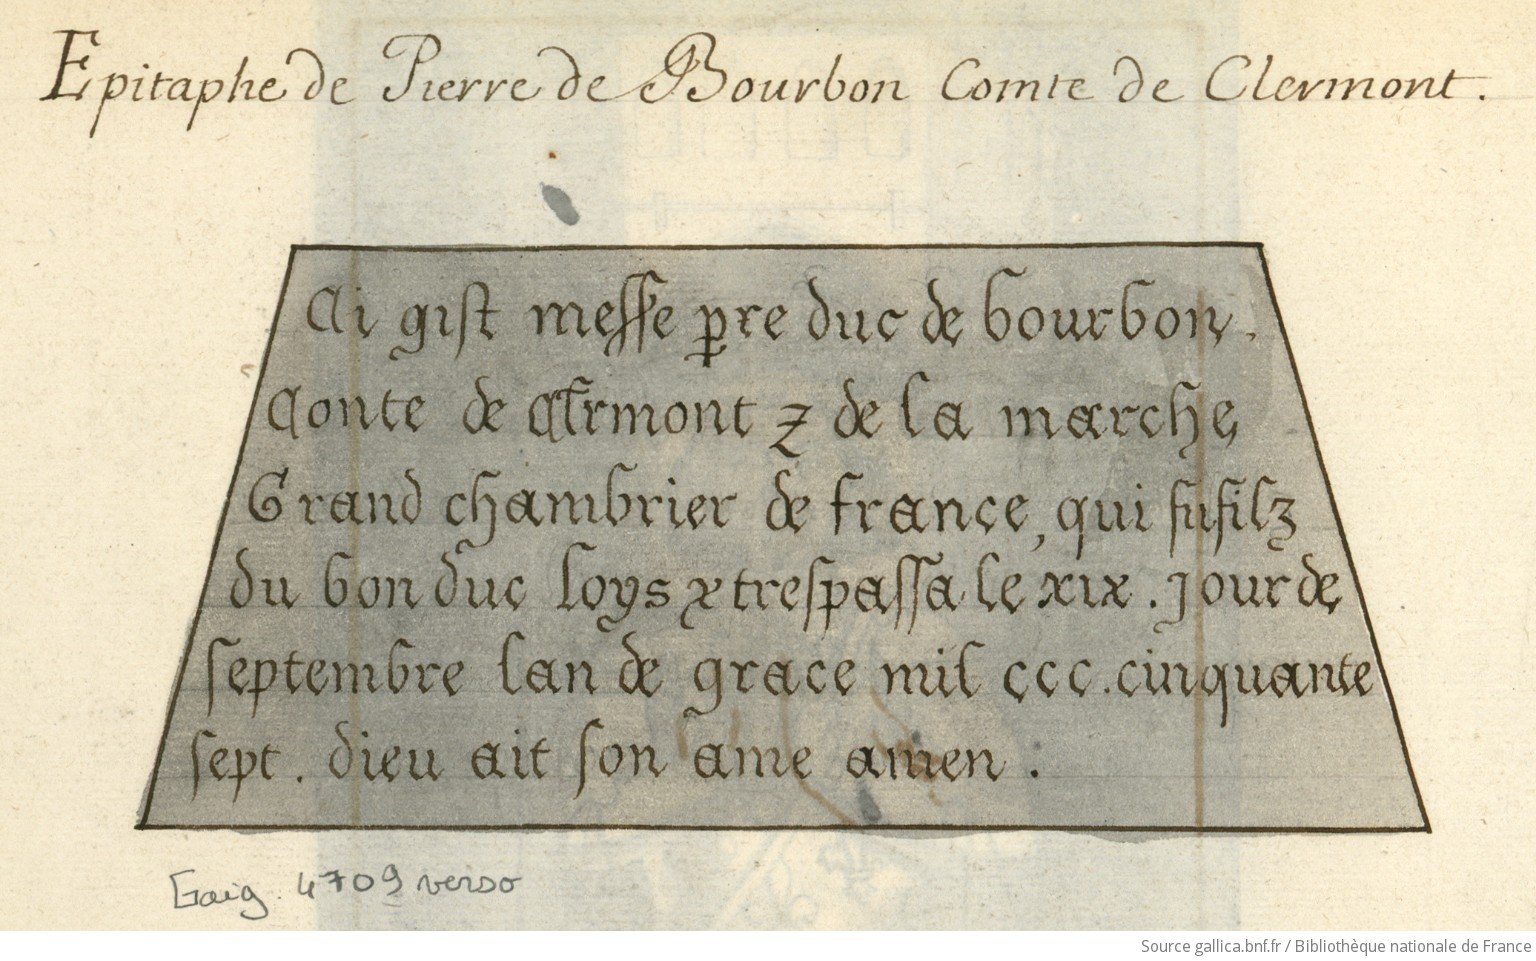 Epitaphe de Pierre de Bourbon Comte de Clermont.
Ci gist messe pre duc de bourbon.
Conte de Clermont & de la marche
Grand chambrier de france, qui fu filz
du bon duc loys & trespassa le xix. jour de
septembre lan de grace mil ccc. cinquante
sept. dieu ait son ame amen.
Gaig. 4709 verso
Source gallica.bnf.fr / Bibliothèque nationale de France